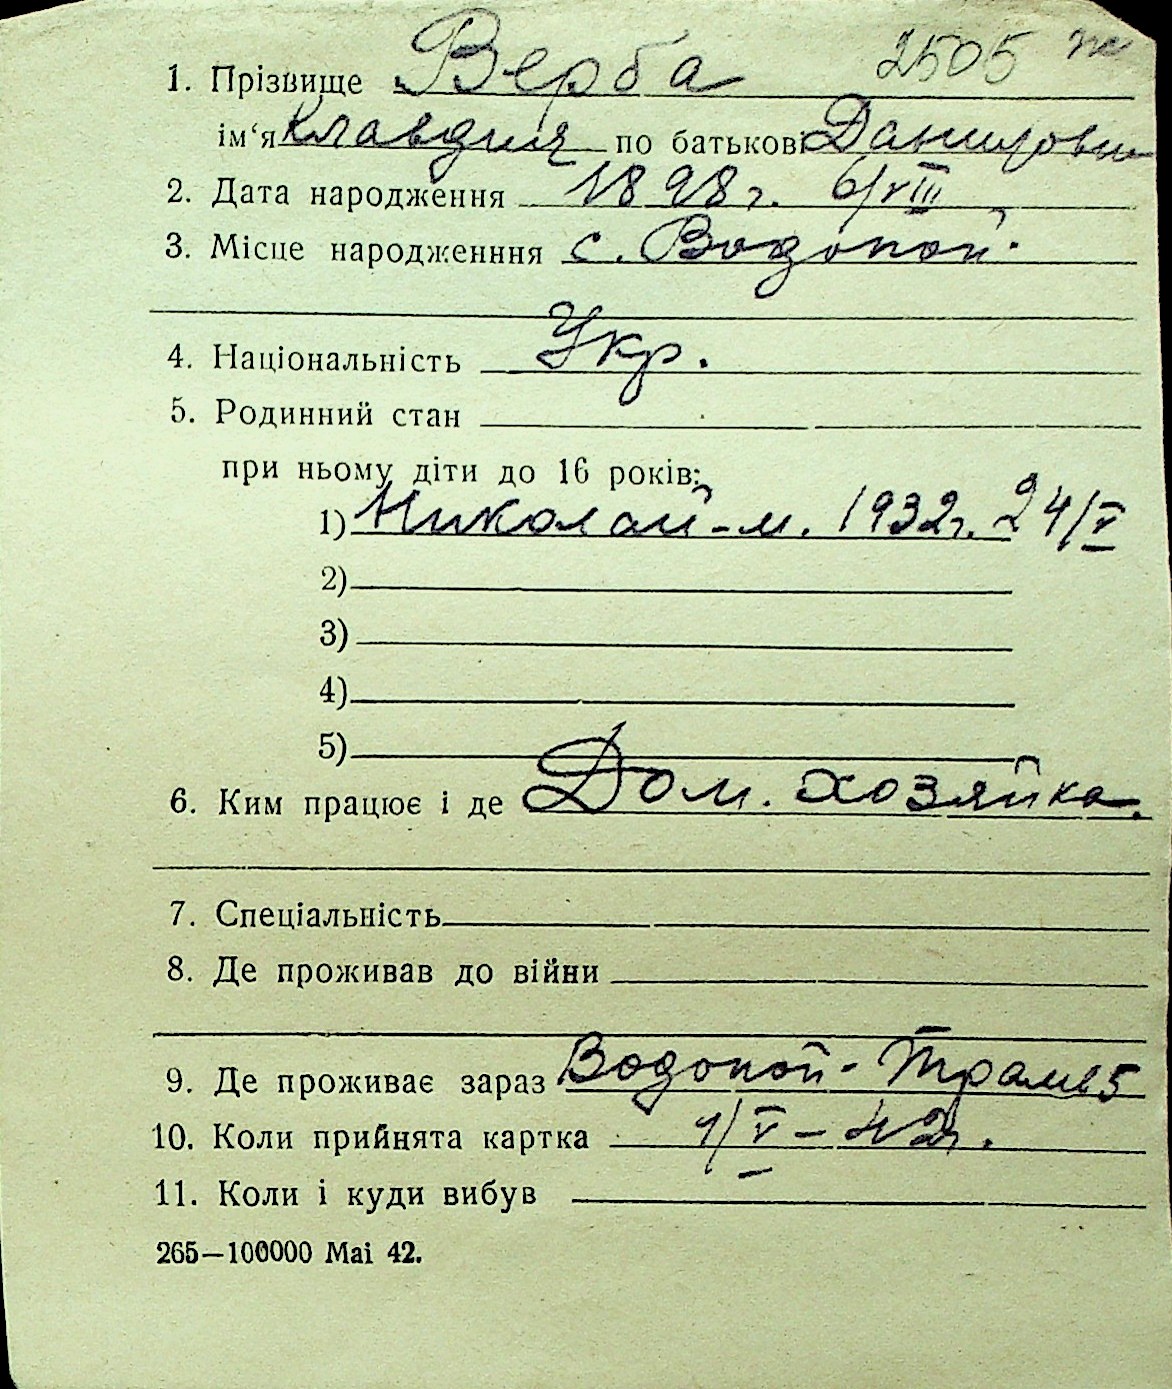 1. Прізвище Верба 2505 ж
ім‘я Клавдия по батькові Даниловн
2. Дата народження 1898 г. 6/VIII
3. Місце народженння с. Водопой.
4. Національність Укр.
5. Родинний стан
при ньому діти до 16 років:
1) Николай - м. 1932 г. 24/V
2)
3)
4)
5)
6. Ким працює і де Дом. хозяйка.
7. Спеціальність
8. Де проживав до війни
9. Де проживає зараз Водопой - Трамв 5
10. Коли прийнята картка 1/V – 42 г.
11. Коли і куди вибув
265—100000 Mai 42.